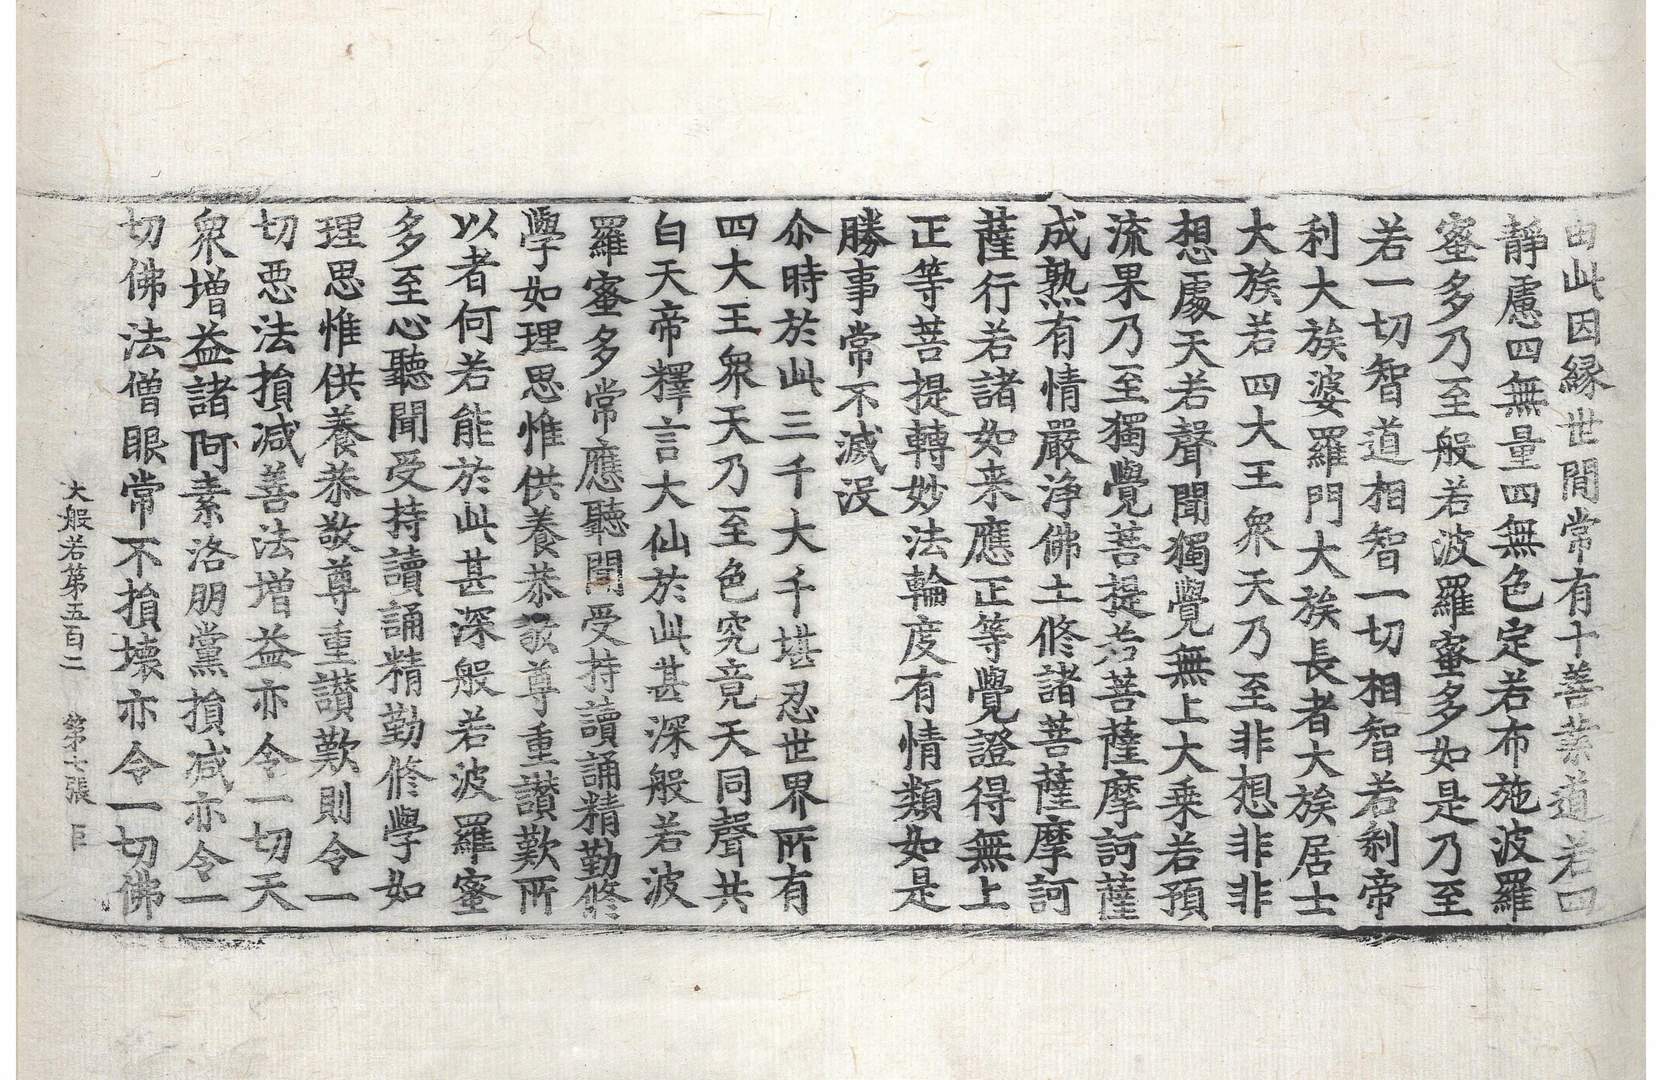 由此因縁世間常有十善業道若四
静慮四無量四無色定若布施波羅
蜜多乃至般若波羅蜜多如是乃至
若一切智道相智一切相智若刹帝
利大族婆羅門大族長者大族居士
大族若四大王衆天乃至非想非非
想處天若聲聞獨覺無上大乗若預
流果乃至獨覺菩提若菩薩摩訶薩
成熟有情嚴浄佛土修諸菩薩摩訶
薩行若諸如来應正等覺證得無上
正等菩提轉妙法輪度有情類如是
勝事常不滅没
尒時於此三千大千堪忍世界所有
四大王衆天乃至色究竟天同聲共
白天帝釋言大仙於此甚深般若波
羅蜜多常應聽聞受持讀誦精勤修
學如理思惟供養恭敬尊重讃歎所
以者何若能於此甚深般若波羅蜜
多至心聽聞受持讀誦精勤修學如
理思惟供養恭敬尊重讃歎則令一
切悪法損減善法増益亦令一切天
衆増益諸阿素洛朋黨損减亦令一
切佛法僧眼常不損壊亦令一切佛
大般若第五百二 第七張 巨